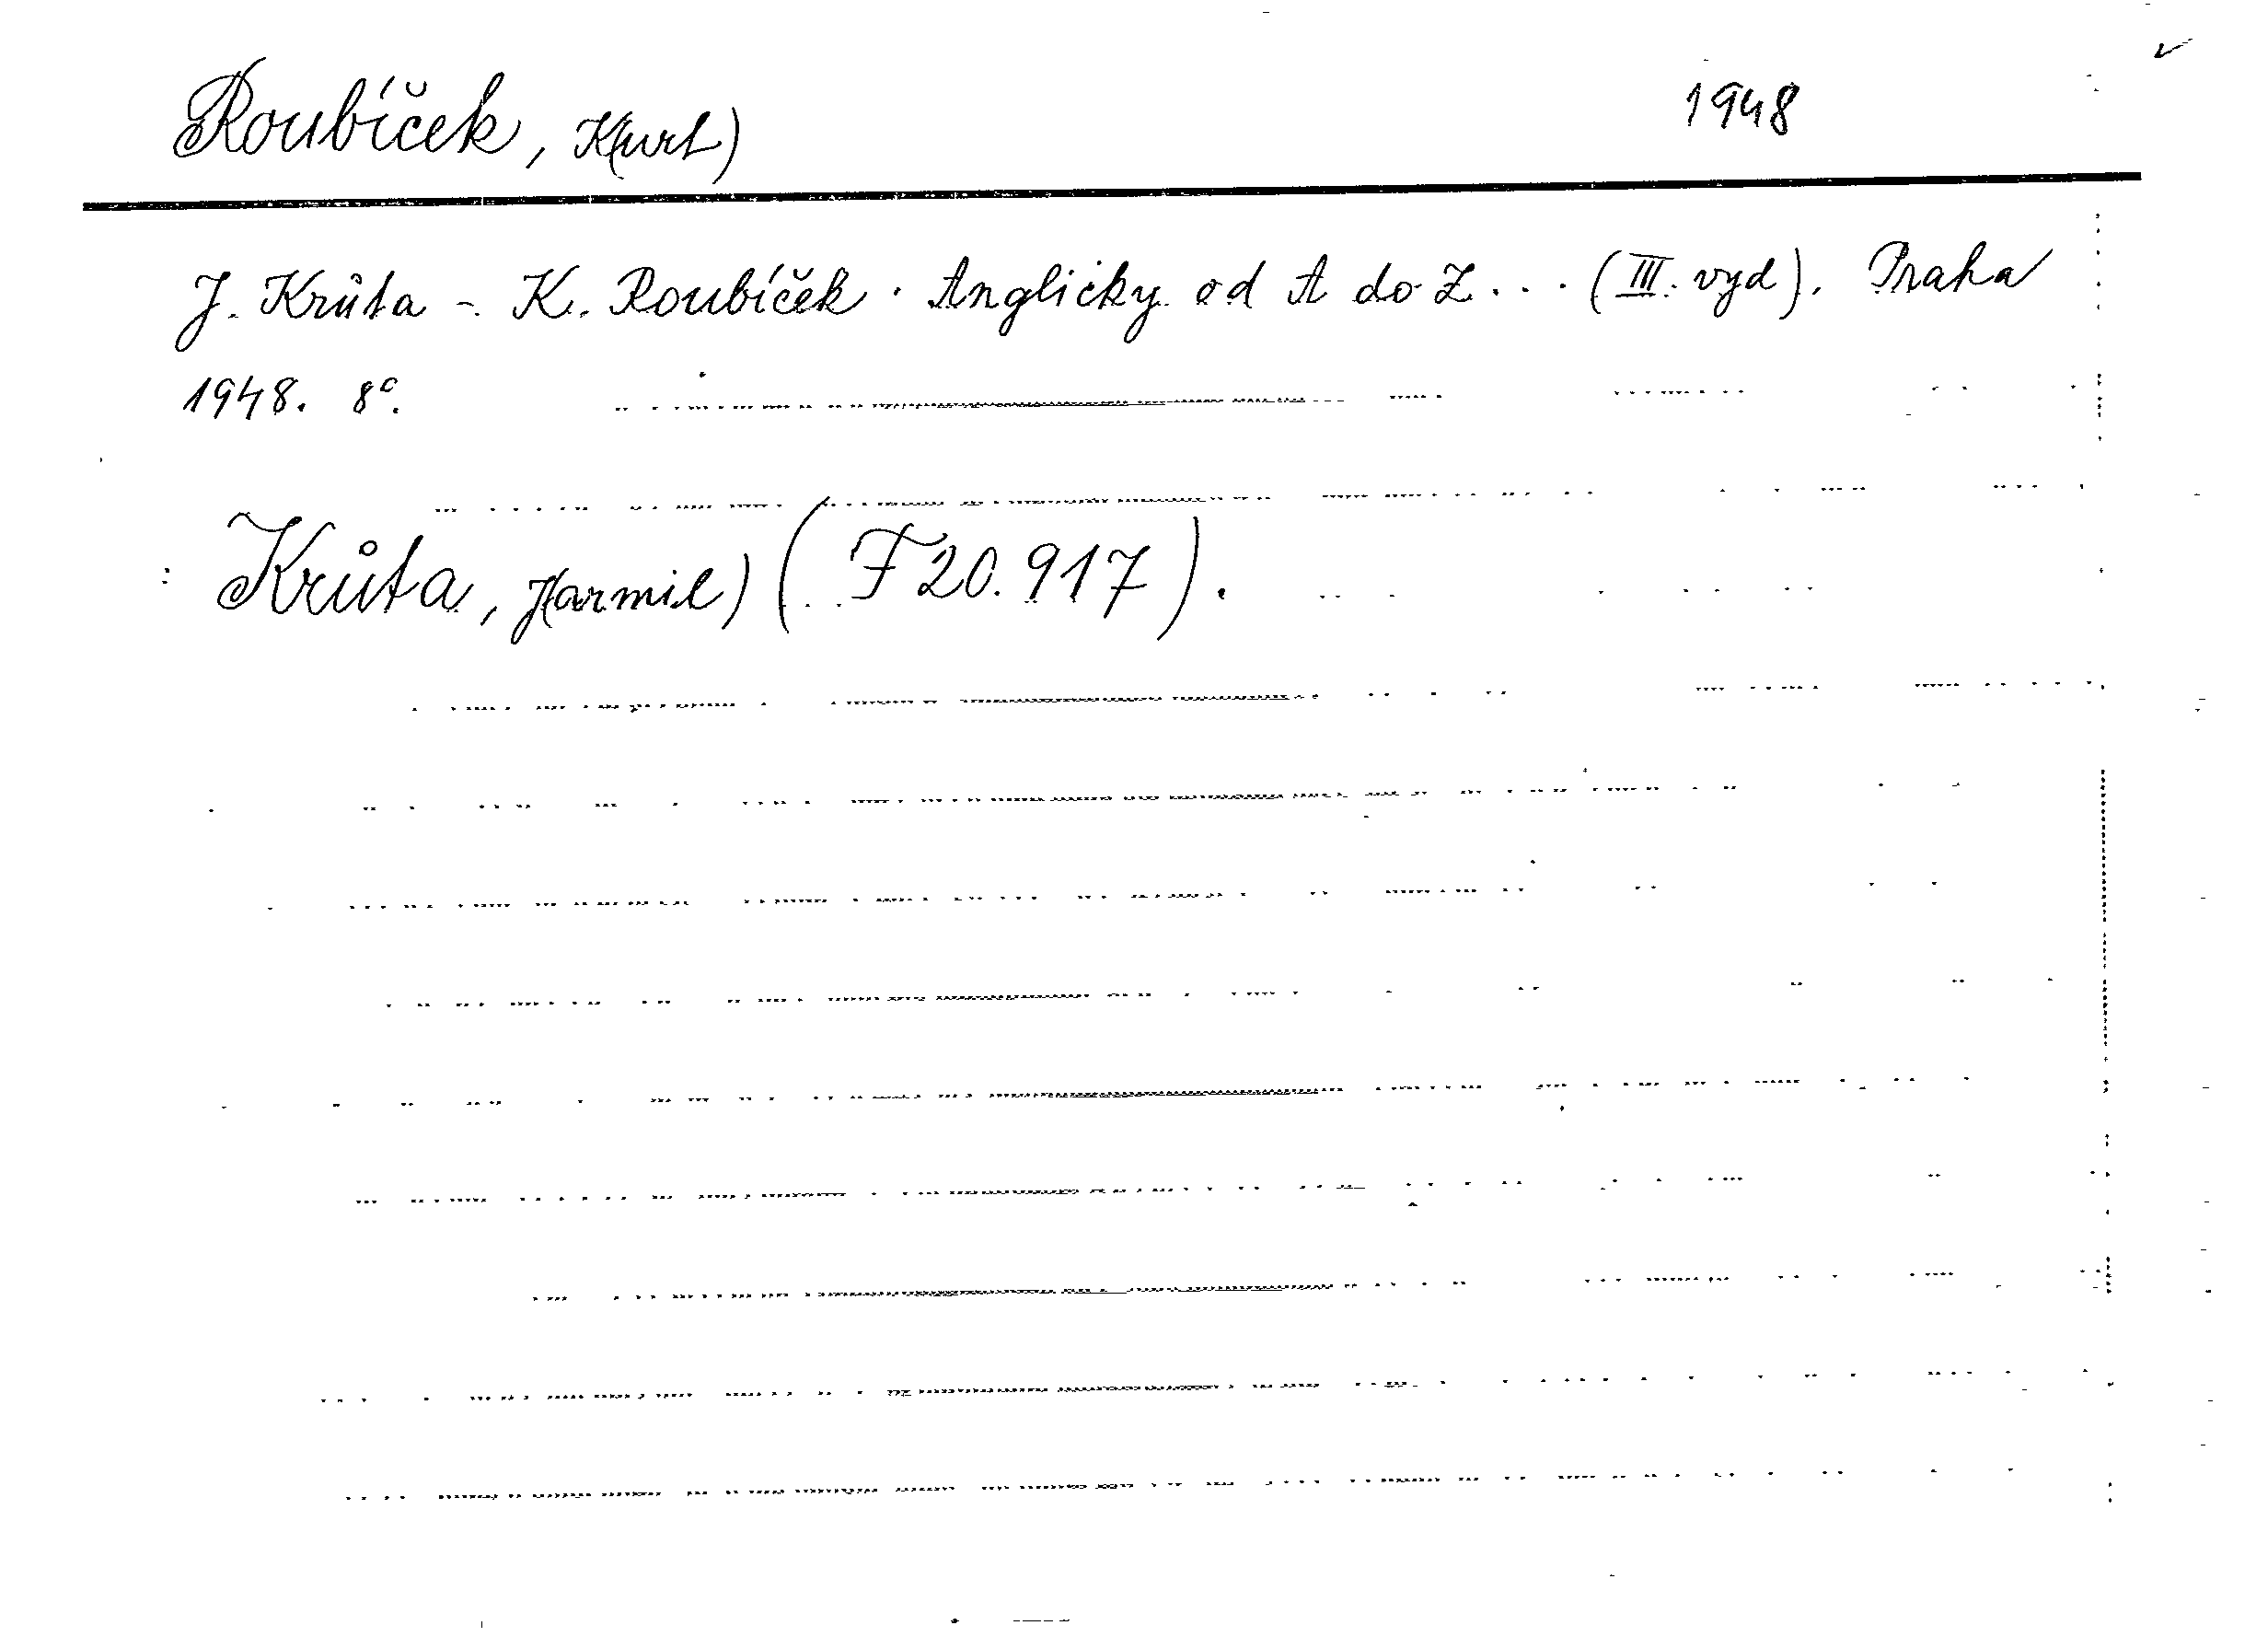 Roubíček, K(urt) 1948
J. Krůta - K. Roubíček. Anglicky od A do Z... (III. vyd). Praha
1948. 8°.
Krůta, J(armil) (F 20.917).